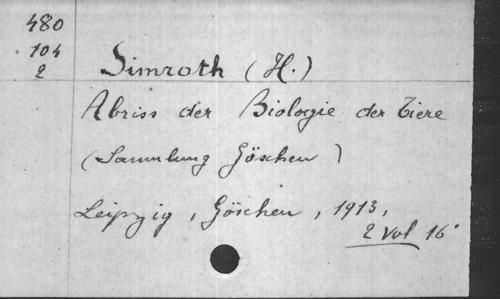 480
104
2
Simroth (H.)
Abriss der Biologie der Tiere
(Sammlung Göschen)
Leipzig, Göschen, 1913,
2 vol 16°